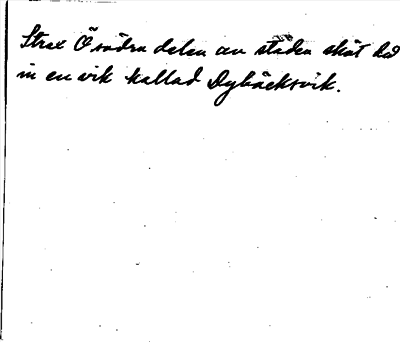 Strax Ö södra delen av staden sköt då
in en vik kallad Dybäcksvik.